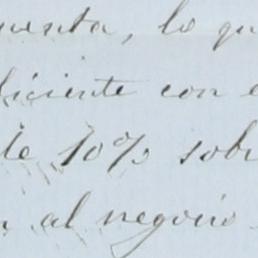 uenta, lo qu
ficiente con e
de 10% sobr
n al negocio